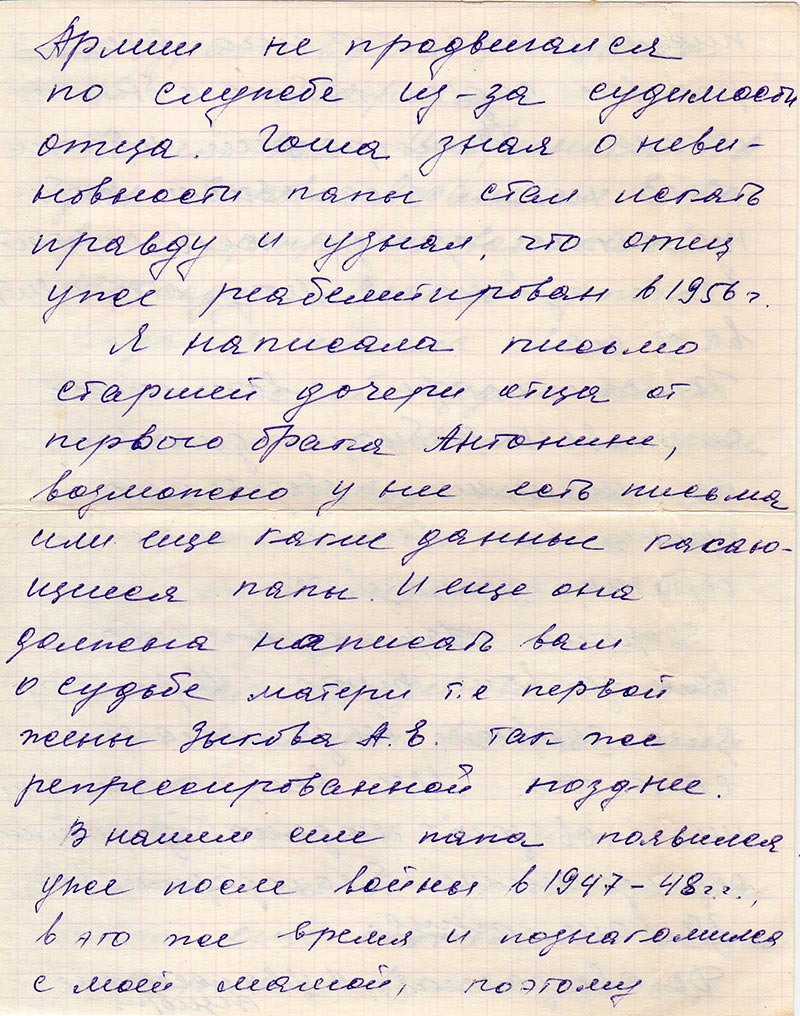 Армии не продвигался
по службе из-за судимости
отца. Гоша зная о неви-
новности папы стал искать
правду и узнал, что отец
уже реабелитирован в 1956 г.
Я написала письмо
старшей дочери отца от
первого брака Антонине,
возможно у нее есть письма
или еще какие данные касаю-
щиеся папы. И еще она
должна написать вам
о судьбе матери т.е первой
жены Зыкова А. Е. так же
репрессированной позднее.
В нашем селе папа появился
уже после войны в 1947-48 г.г.,
в это же время и познакомился
с моей мамой, поэтому